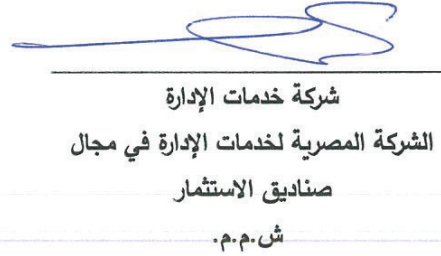 شركة خدمات الإدارة
الشركة المصرية لخدمات الإدارة في مجال
صناديق الاستثمار
ش.م.م.